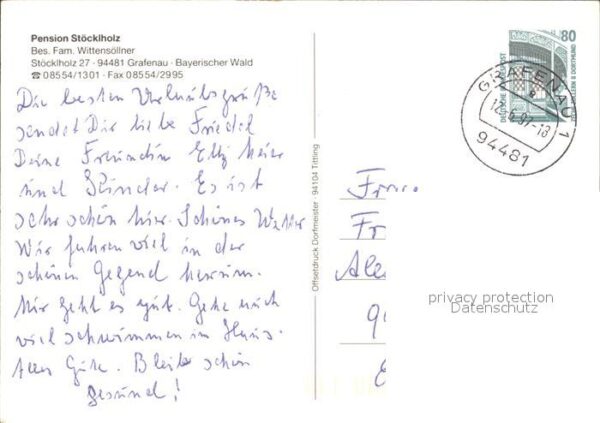 Pension Stöcklholz
Bes. Fam. Wittensöllner
Stöcklholz 27 · 94481 Grafenau · Bayerischer Wald
☎ 08554/1301 · Fax 08554/2995
Die besten Urlaubsgrüße
sendet Dir liebe Friedel
Deine Freundin Elly
und Günder. Es ist
sehr schön hier. Schönes Wetter
Wir fahren viel in der
schönen Gegend herum.
Mir geht es gut. Gehe auch
viel schwimmen im Haus.
Alles Gute. Bleib schön
gesund!
Offsetdruck Dorfmeister · 94104 Tittling
80
DEUTSCHE BUNDESPOST
GRAFENAU 1
94481
Frau
Fr
Ale
9
privacy protection
Datenschutz